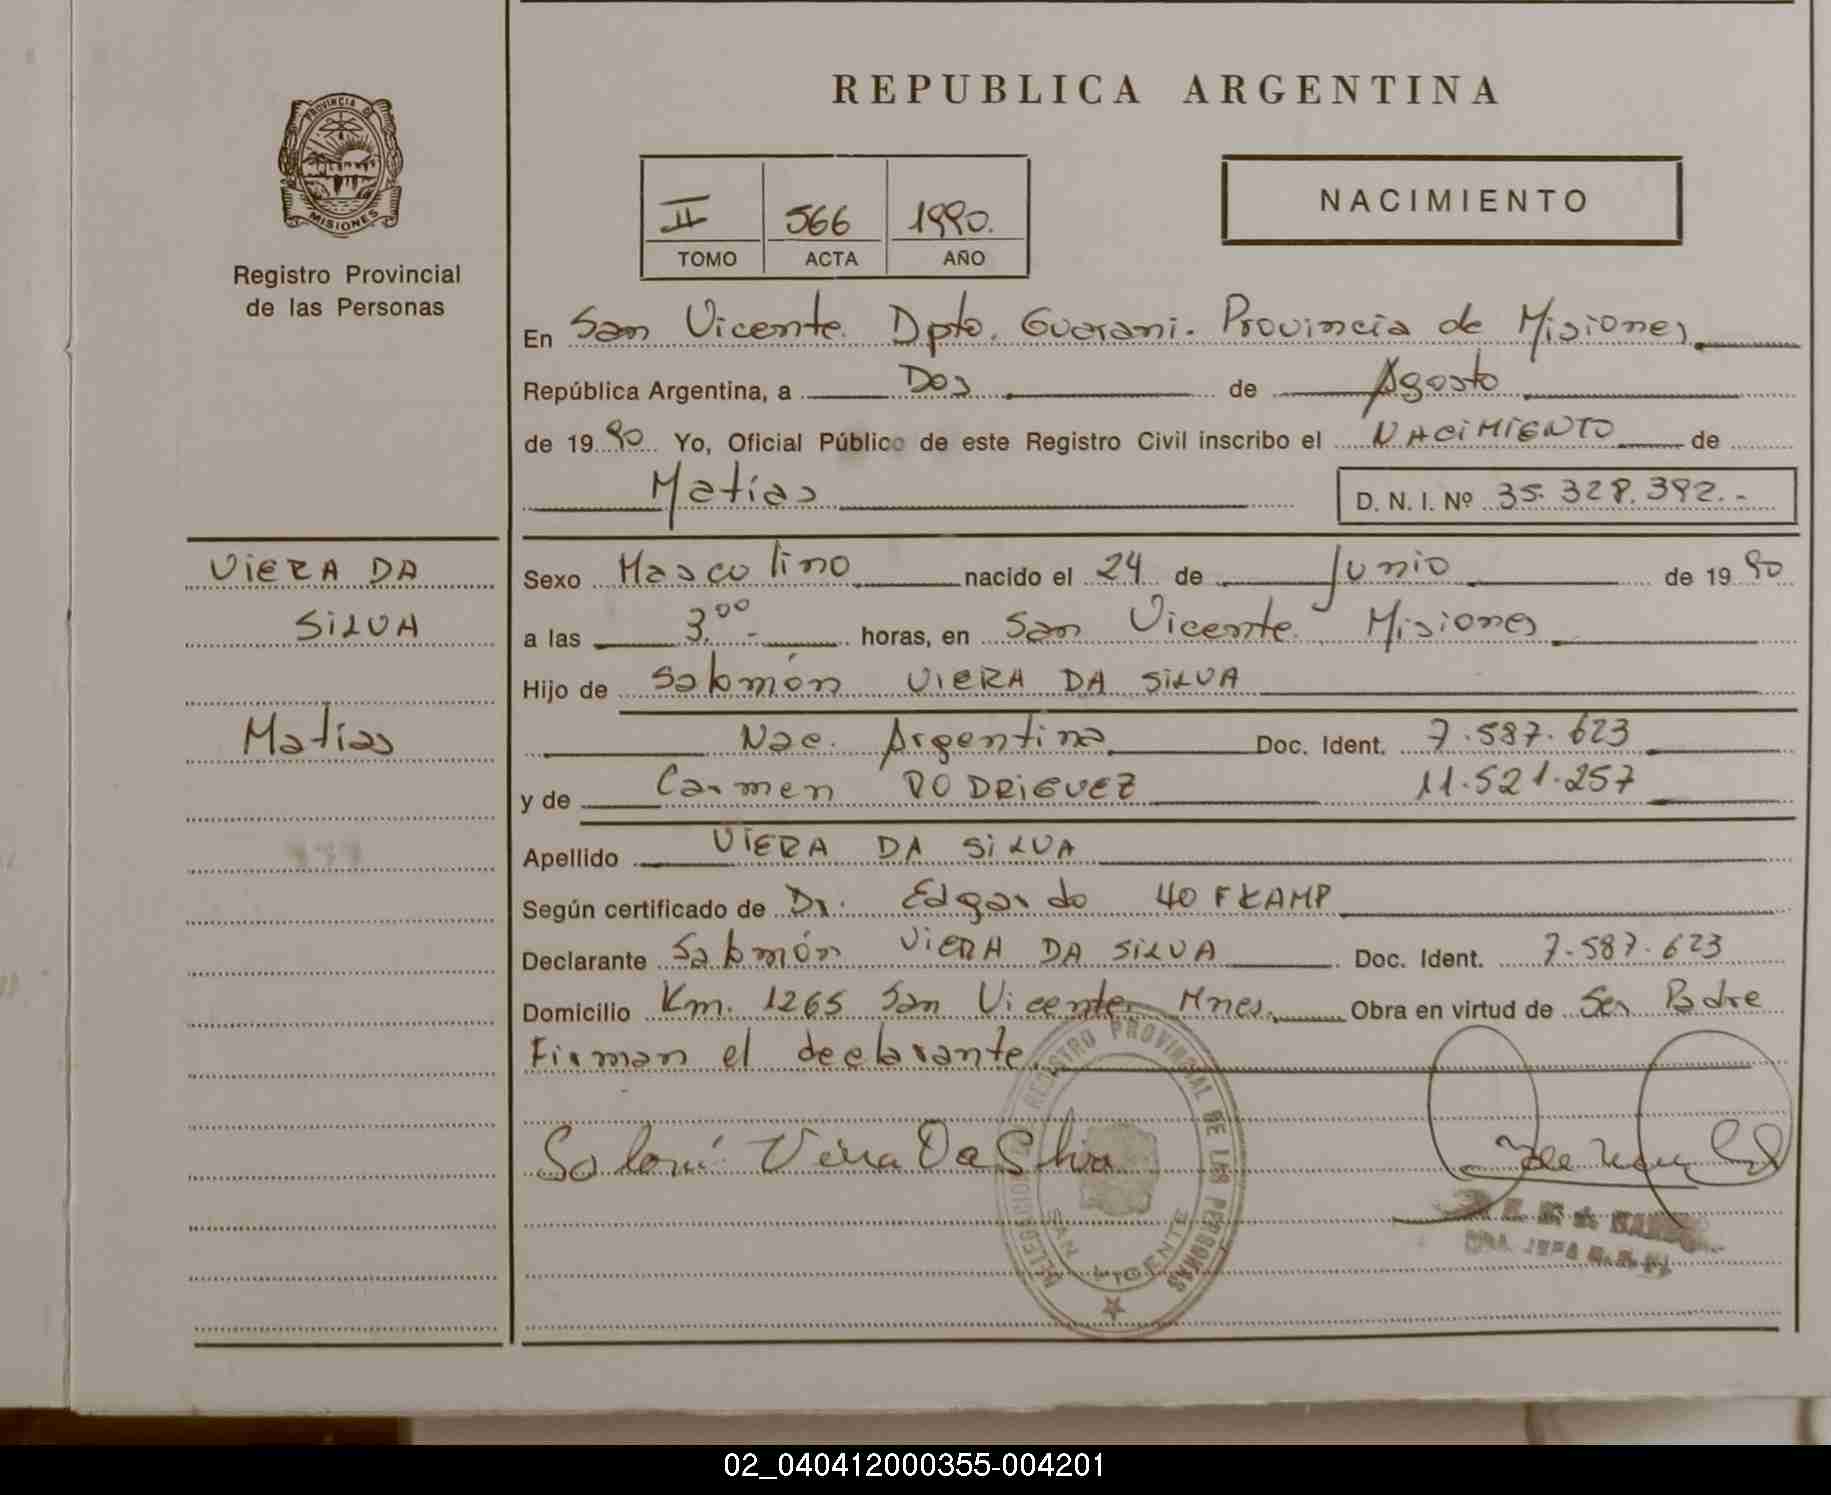 REPUBLICA ARGENTINA
PROVINCIA DE
MISIONES
Registro Provincial
de las Personas
II 566 1990.
TOMO ACTA AÑO
NACIMIENTO
En San Vicente. Dpto. Guarani. Provincia de Misiones
República Argentina, a Dos de Agosto
de 19 90 Yo, Oficial Público de este Registro Civil inscribo el NACIMIENTO de
Matías
D. N. I. Nº 35.328.392.-
VIERA DA
SILVA
Matías
Sexo Masculino nacido el 24 de Junio de 19 90
a las 3.00- horas, en San Vicente. Misiones
Hijo de Salomón VIERA DA SILVA
Nac. Argentina Doc. Ident. 7.587.623
y de Carmen RODRIGUEZ 11.521.257
Apellido VIERA DA SILVA
Según certificado de Dr. Edgardo HOFKAMP
Declarante Salomón VIERA DA SILVA Doc. Ident. 7.587.623
Domicilio Km. 1265 San Vicente Mnes. Obra en virtud de Ser Padre
Firman el declarante.
DELEGACION REGISTRO PROVINCIAL DE LAS PERSONAS
SAN VICENTE
Viera Da Silva
02_040412000355-004201